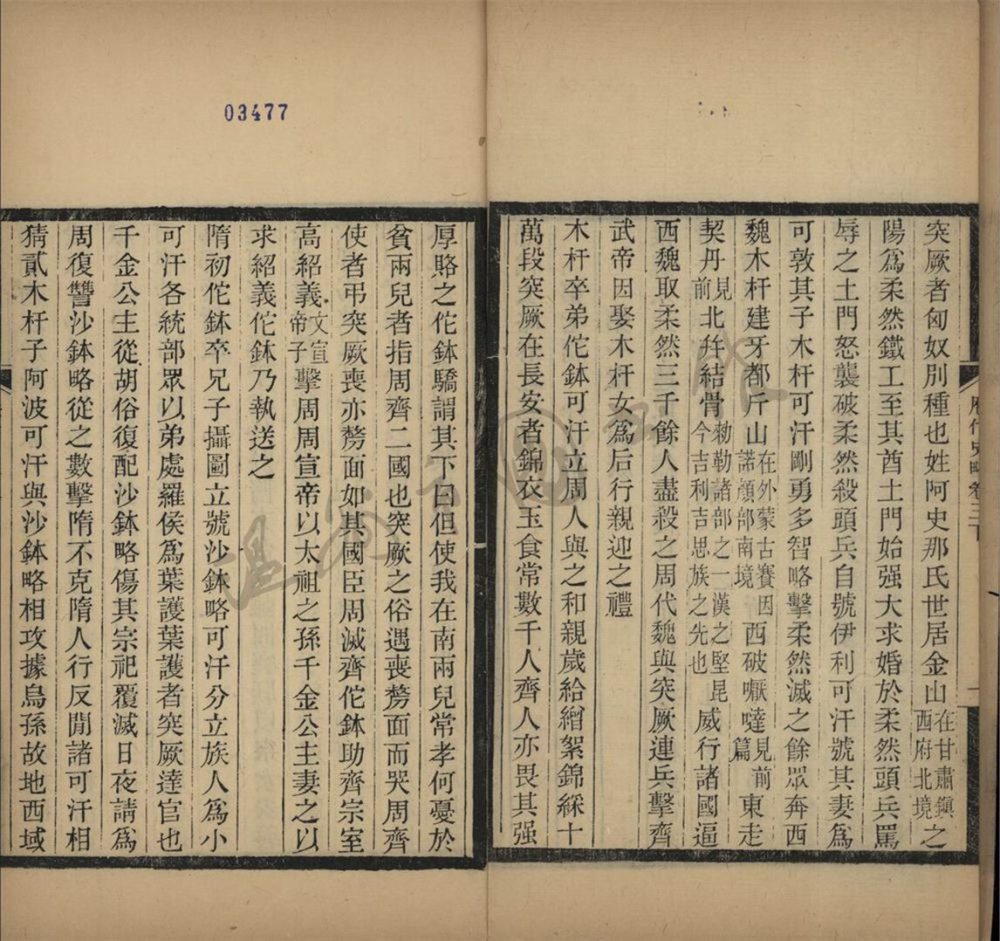 突厥者匈奴別種也姓阿史那氏世居金山在甘肅鎭西府北境之
陽爲柔然鐵工至其酋土門始强大求婚於柔然頭兵罵
辱之土門怒襲破柔然殺頭兵自號伊利可汗號其妻爲
可敦其子木杆可汗剛勇多智略擊柔然滅之餘眾奔西
魏木杆建牙都斤山在外蒙古賽因諾顏部南境西破嚈噠見前篇東走
契丹見前北幷結骨勅勒諸部之一漢之堅昆今吉利吉思族之先也威行諸國逼
西魏取柔然三千餘人盡殺之周代魏與突厥連兵擊齊
武帝因娶木杆女爲后行親迎之禮
木杆卒弟佗鉢可汗立周人與之和親歲給繒絮錦綵十
萬段突厥在長安者錦衣玉食常數千人齊人亦畏其强
厚賂之佗鉢驕謂其下曰但使我在南兩兒常孝何憂於
貧兩兒者指周齊二國也突厥之俗遇喪剺面而哭周齊
使者弔突厥喪亦剺面如其國臣周滅齊佗鉢助齊宗室
高紹義文宣帝子擊周周宣帝以太祖之孫千金公主妻之以
求紹義佗鉢乃執送之
隋初佗鉢卒兄子攝圖立號沙鉢略可汗分立族人爲小
可汗各統部眾以弟處羅侯爲葉護葉護者突厥達官也
千金公主從胡俗復配沙鉢略傷其宗祀覆滅日夜請爲
周復讐沙鉢略從之數擊隋不克隋人行反閒諸可汗相
猜貳木杆子阿波可汗與沙鉢略相攻據烏孫故地西域
03477